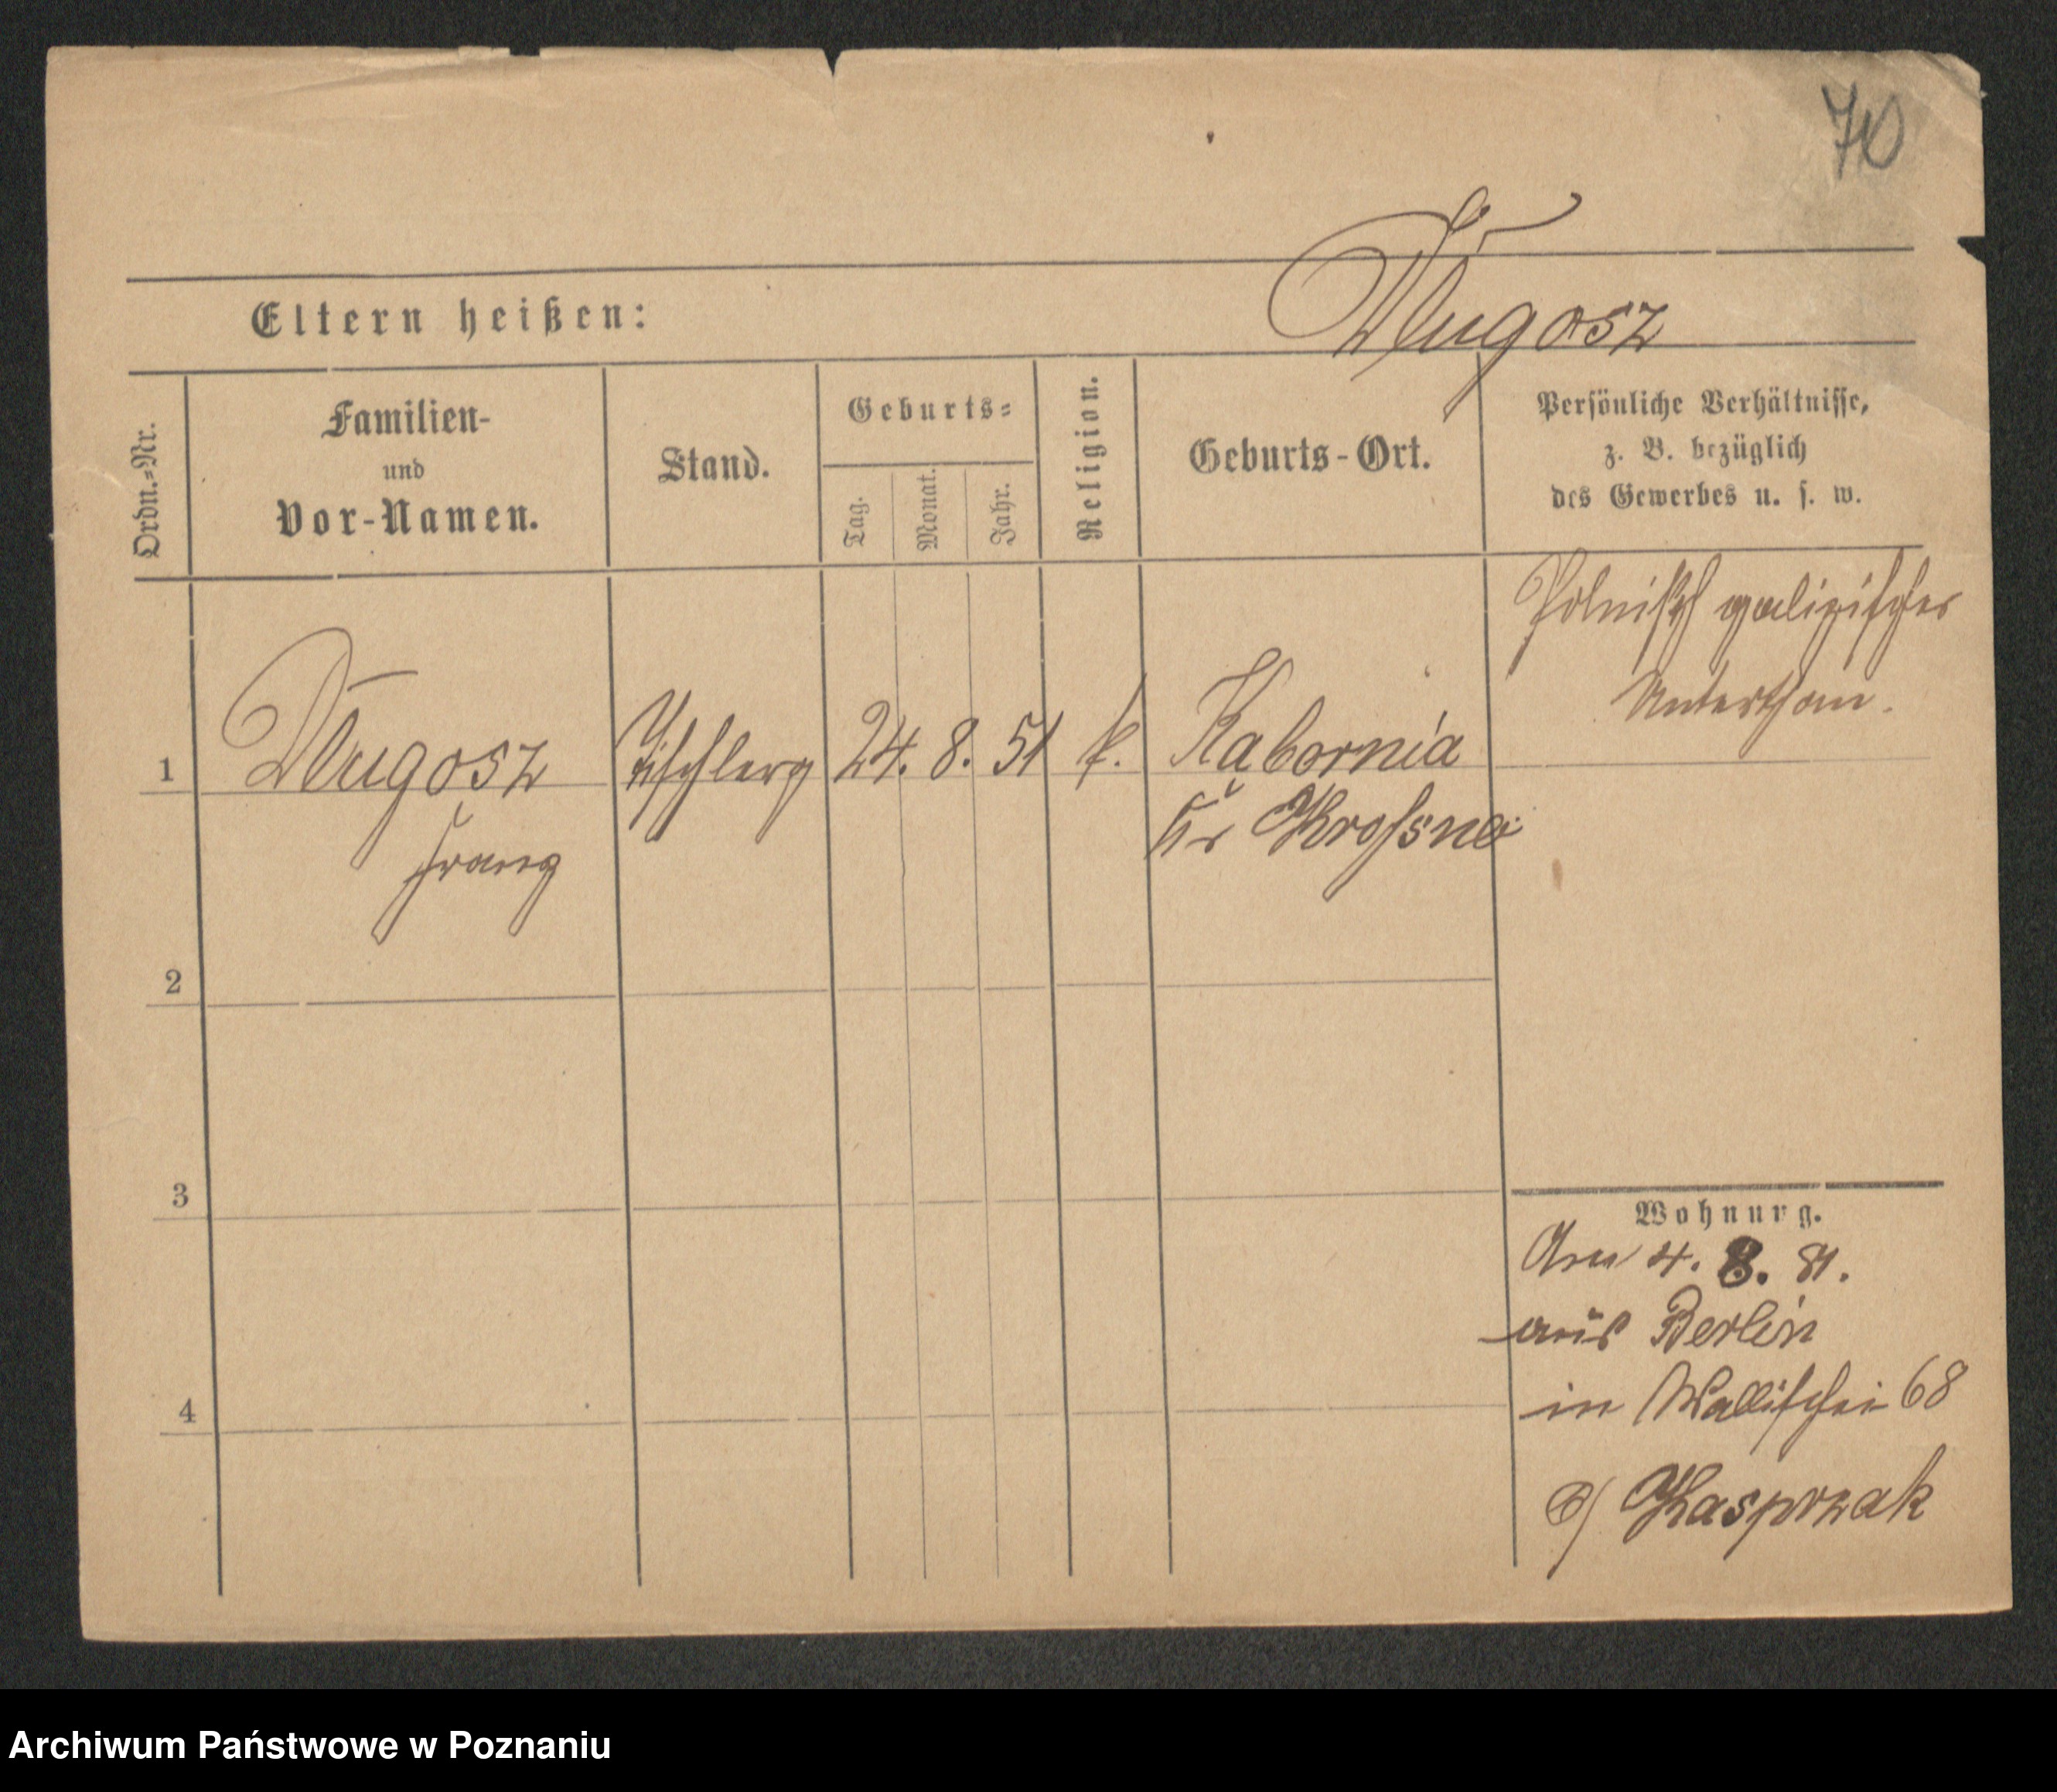 70
Długosz
Eltern heißen:
Ordn.=Nr.
Familien-
und
Vor-Namen.
Stand.
Geburts=
Tag.
Monat.
Jahr.
Religion.
Geburts-Ort.
Persönliche Verhältnisse,
z. B. bezüglich
des Gewerbes u. s. w.
Polnisch galizischer
Unterthan.
1 Długosz Tischlerg 24. 8. 51 k. Kabornia
Franz Kr Krossno
2
3
4
Wohnung.
Am 4. 8. 81.
aus Berlin
in Wallischei 68
b/ Kasprzak
Archiwum Państwowe w Poznaniu